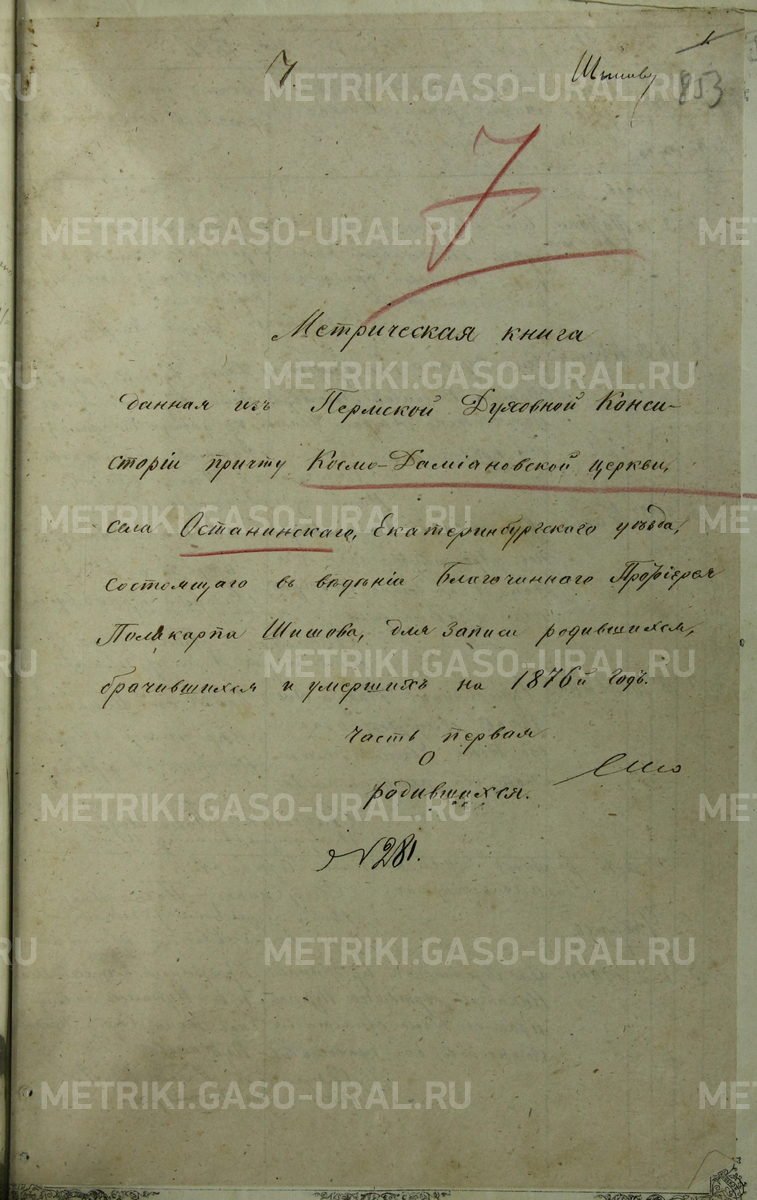 7.
Шишову
853
7
Метрическая книга
данная изъ Пермской Духовной Конси-
сторіи причту Космо-Даміановской церкви,
села Останинскаго, Екатеринбургского уѣзда,
состоящаго въ вѣдѣніи Благочиннаго Протоіерея
Поликарпа Шишова, для записи родившихся,
брачившихся и умершихъ на 1876й годъ.
Часть первая
О
родившихся.
№281.
METRIKI.GASO-URAL.RU